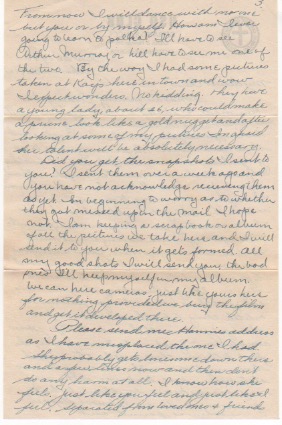 3.
From now I will dance with no one
but you or by myself. However I ever
going to learn to polka? I'll have to see
Arthur Murray or he'll have to see me one of
the two. By the way I had some pictures
taken at Kays here in town and wow
No kidding they have
a young lady about 26, who could make
a prune look like a gold nugget and after
looking at some of my pictures I'm afraid
her talent will be absolutely necessary.
Did you get the snapshots I sent to
you? I sent them over a week ago and
you have not acknowledge receiving them
as yet. I'm beginning to worry as to whether
they got messed up in the mail I hope
not. I am keeping a scrapbook or album
of all the pictures we take here and I will
send it to you when it gets formed. All
my good shots I will send you the bad
ones I'll keep myself in my album.
We can hire cameras just like yours here
for nothing provided we buy the films
and get it developed there.
Please send me Hannies address
as I have misplaced the one I had
She probably gets lonesome down there
and a few letters now and then don't
do any harm at all. I know how she
feels. Just like you feel and just like I
feel. Separated from loved ones & friends